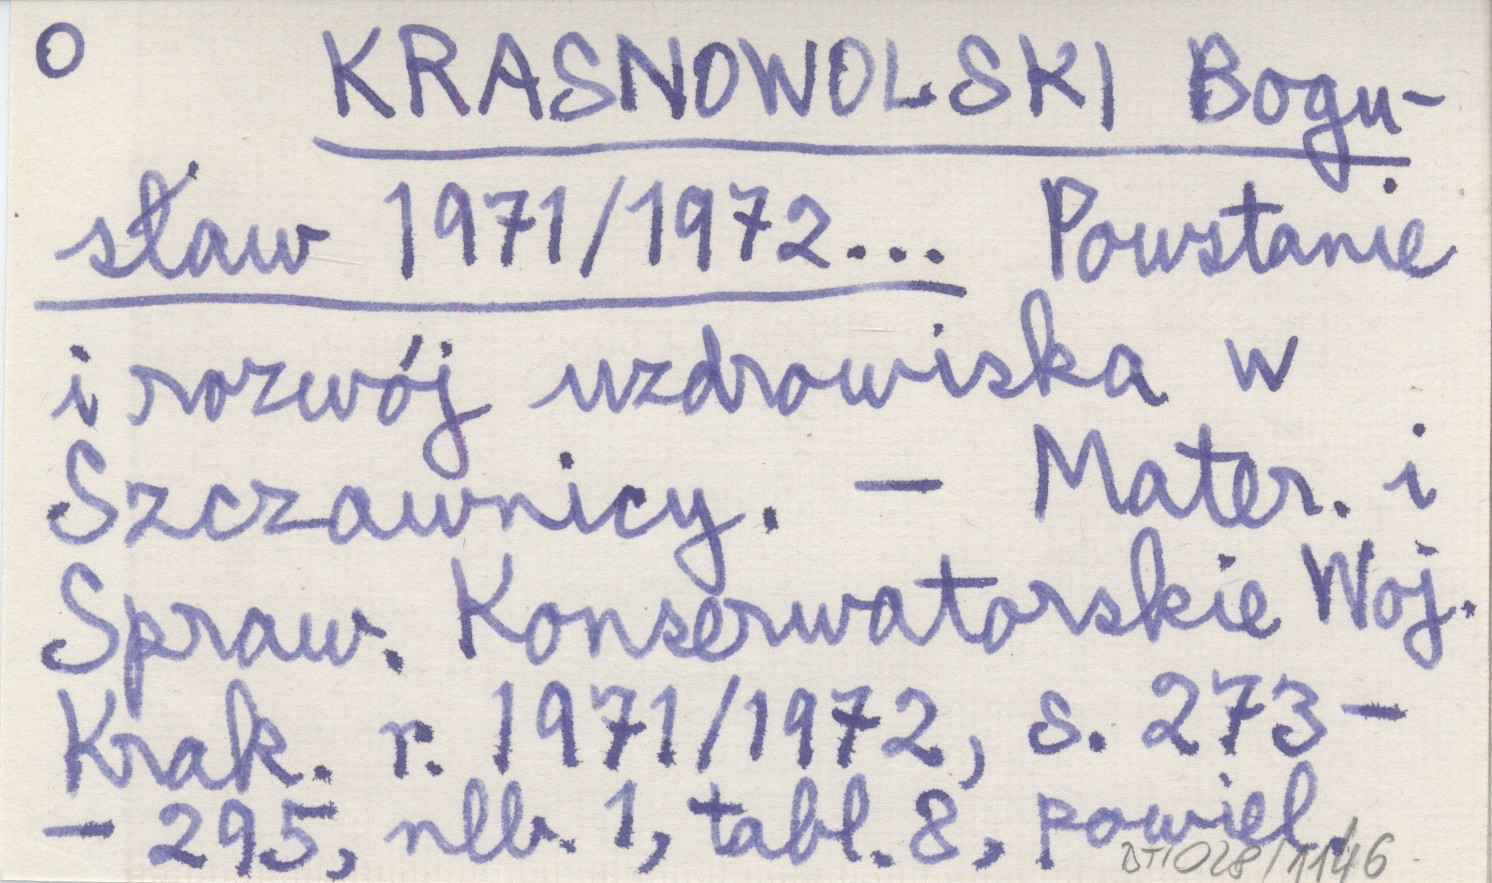 O KRASNOWOLSKI Bogu-
sław 1971/1972... Powstanie
i rozwój uzdrowiska w
Szczawnicy. — Mater. i
Spraw. Konserwatorskie Woj.
Krak. r. 1971/1972, s. 273—
— 295, nlb. 1, tabl. 8, powiel.
DTI 028/1146